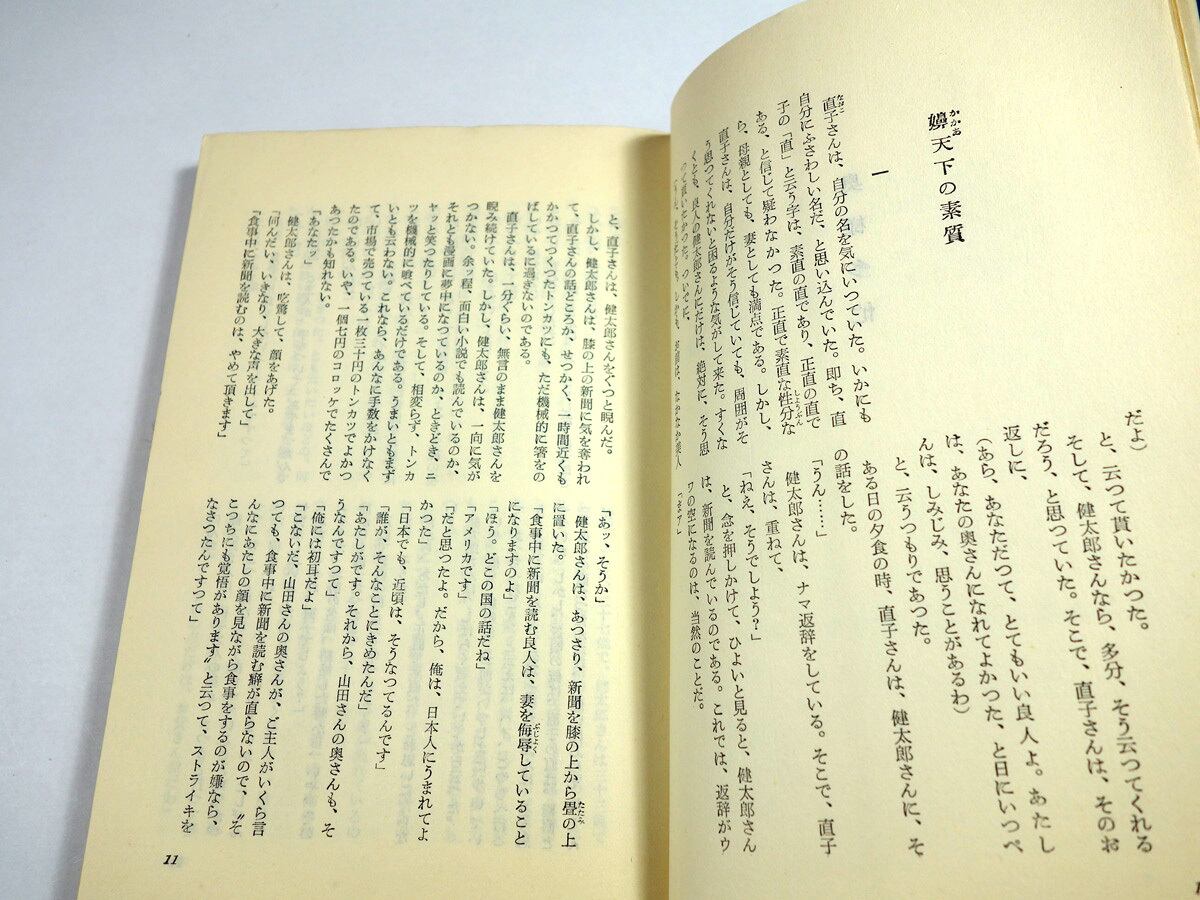 嬶天下の素質
かかあ
一
直子さんは、自分の名を気にいつていた。いかにも
なおこ
自分にふさわしい名だ、と思い込んでいた。即ち、直
子の「直」と云う字は、素直の直であり、正直の直で
ある、と信じて疑わなかつた。正直で素直な性分な
しようぶん
ら、母親としても、妻としても満点である。しかし、
直子さんは、自分だけがそう信じていても、周囲がそ
う思つてくれないと困るような気がして来た。すくな
くとも、良人の健太郎さんにだけは、絶対に、そう思
つて貰いたかつた。ついでに、
だよ）
と、云つて貰いたかつた。
そして、健太郎さんなら、多分、そう云つてくれる
だろう、と思つていた。そこで、直子さんは、そのお
返しに、
（あら、あなただつて、とてもいい良人よ。あたし
は、あなたの奥さんになれてよかつた、と日にいつぺ
んは、しみじみ、思うことがあるわ）
と、云うつもりであつた。
ある日の夕食の時、直子さんは、健太郎さんに、そ
の話をした。
「うん……」
健太郎さんは、ナマ返辞をしている。そこで、直子
さんは、重ねて、
「ねえ、そうでしよう？」
と、念を押しかけて、ひよいと見ると、健太郎さん
は、新聞を読んでいるのである。これでは、返辞がウ
ワの空になるのは、当然のことだ。
「まア」
と、直子さんは、健太郎さんをぐつと睨んだ。
しかし、健太郎さんは、膝の上の新聞に気を奪われ
て、直子さんの話どころか、せつかく、一時間近くも
かかつてつくつたトンカツにも、ただ機械的に箸をの
ばしているに過ぎないのである。
直子さんは、一分ぐらい、無言のまま健太郎さんを
睨み続けていた。しかし、健太郎さんは、一向に気が
つかない。余ッ程、面白い小説でも読んでいるのか、
それとも漫画に夢中になつているのか、ときどき、ニ
ヤッと笑つたりしている。そして、相変らず、トンカ
ツを機械的に喰べているだけである。うまいともまず
いとも云わない。これなら、あんなに手数をかけなく
て、市場で売つている一枚三十円のトンカツでよかつ
たのである。いや、一個七円のコロッケでたくさんで
あつたかも知れない。
「あなたッ」
健太郎さんは、吃驚して、顔をあげた。
「何んだい、いきなり、大きな声を出して」
「食事中に新聞を読むのは、やめて頂きます」
「あッ、そうか」
健太郎さんは、あつさり、新聞を膝の上から畳の上
たたみ
に置いた。
「食事中に新聞を読む良人は、妻を侮辱していること
ぶじよく
になりますのよ」
「ほう。どこの国の話だね」
「アメリカです」
「だと思つたよ。だから、俺は、日本人にうまれてよ
かつた」
「日本でも、近頃は、そうなつてるんです」
「誰が、そんなことにきめたんだ」
「あたしがです。それから、山田さんの奥さんも、そ
うなんですつて」
「俺には初耳だよ」
「こないだ、山田さんの奥さんが、ご主人がいくら言
つても、食事中に新聞を読む癖が直らないので、〝そ
んなにあたしの顔を見ながら食事をするのが嫌なら、
こつちにも覚悟があります〟と云つて、ストライキを
なさつたんですつて」
11